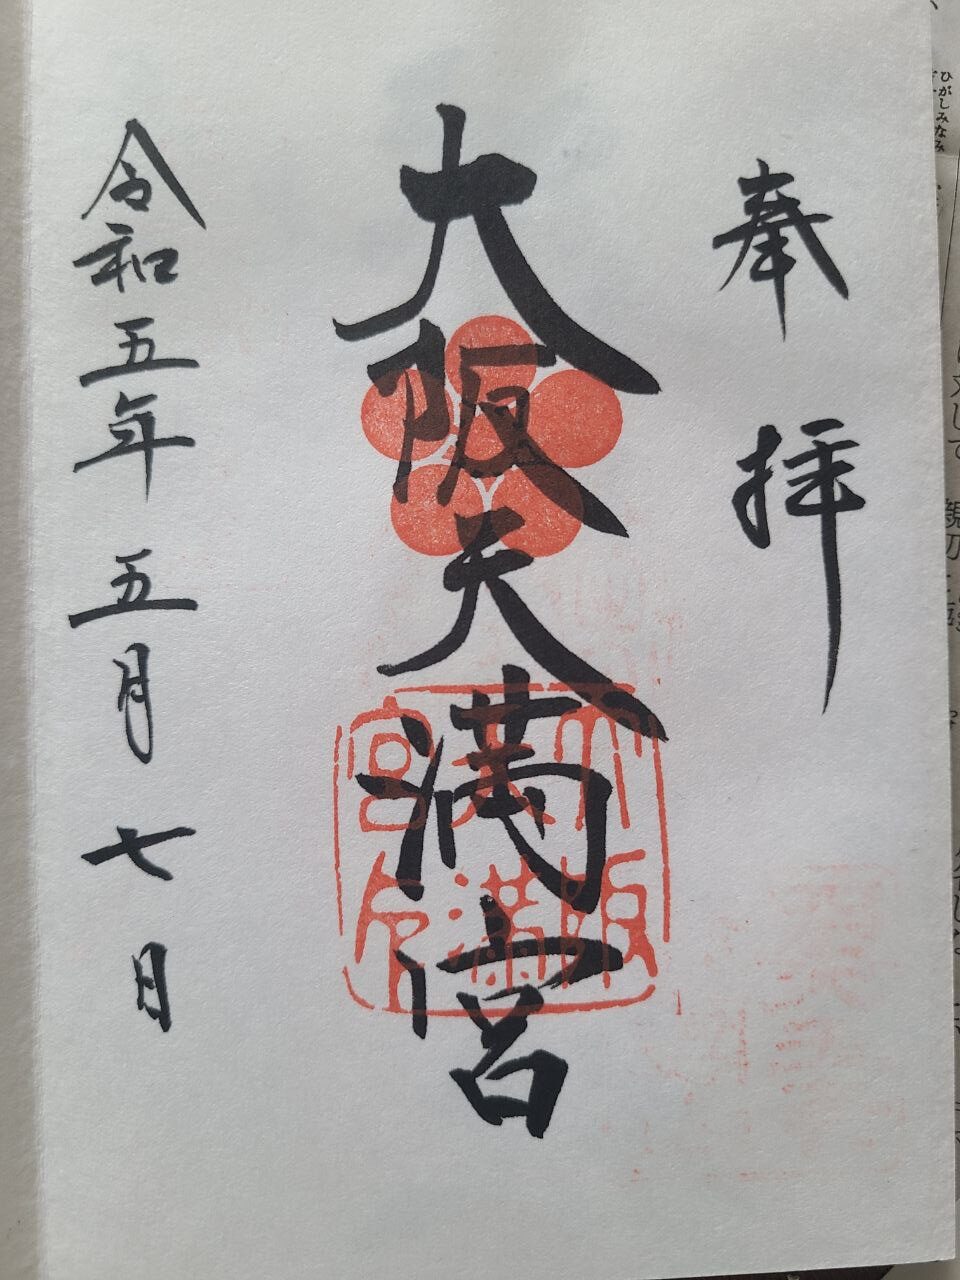 奉拝
大阪天満宮
大阪
天満
宮印
令和五年 五月 七日
ひがしみなみ